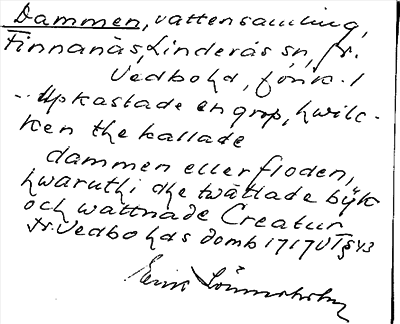 Dammen, vattensamling,
Finnanäs, Linderås sn, fr.
Vedbohd,förk. 1
... Upkastade en grop, hwilc-
ken the kallade
dammen eller floden,
hwaruthi dhe twättade bijk
och wattnade Creatur
N. Vedbohds domb 1717 VT § 43
Erik